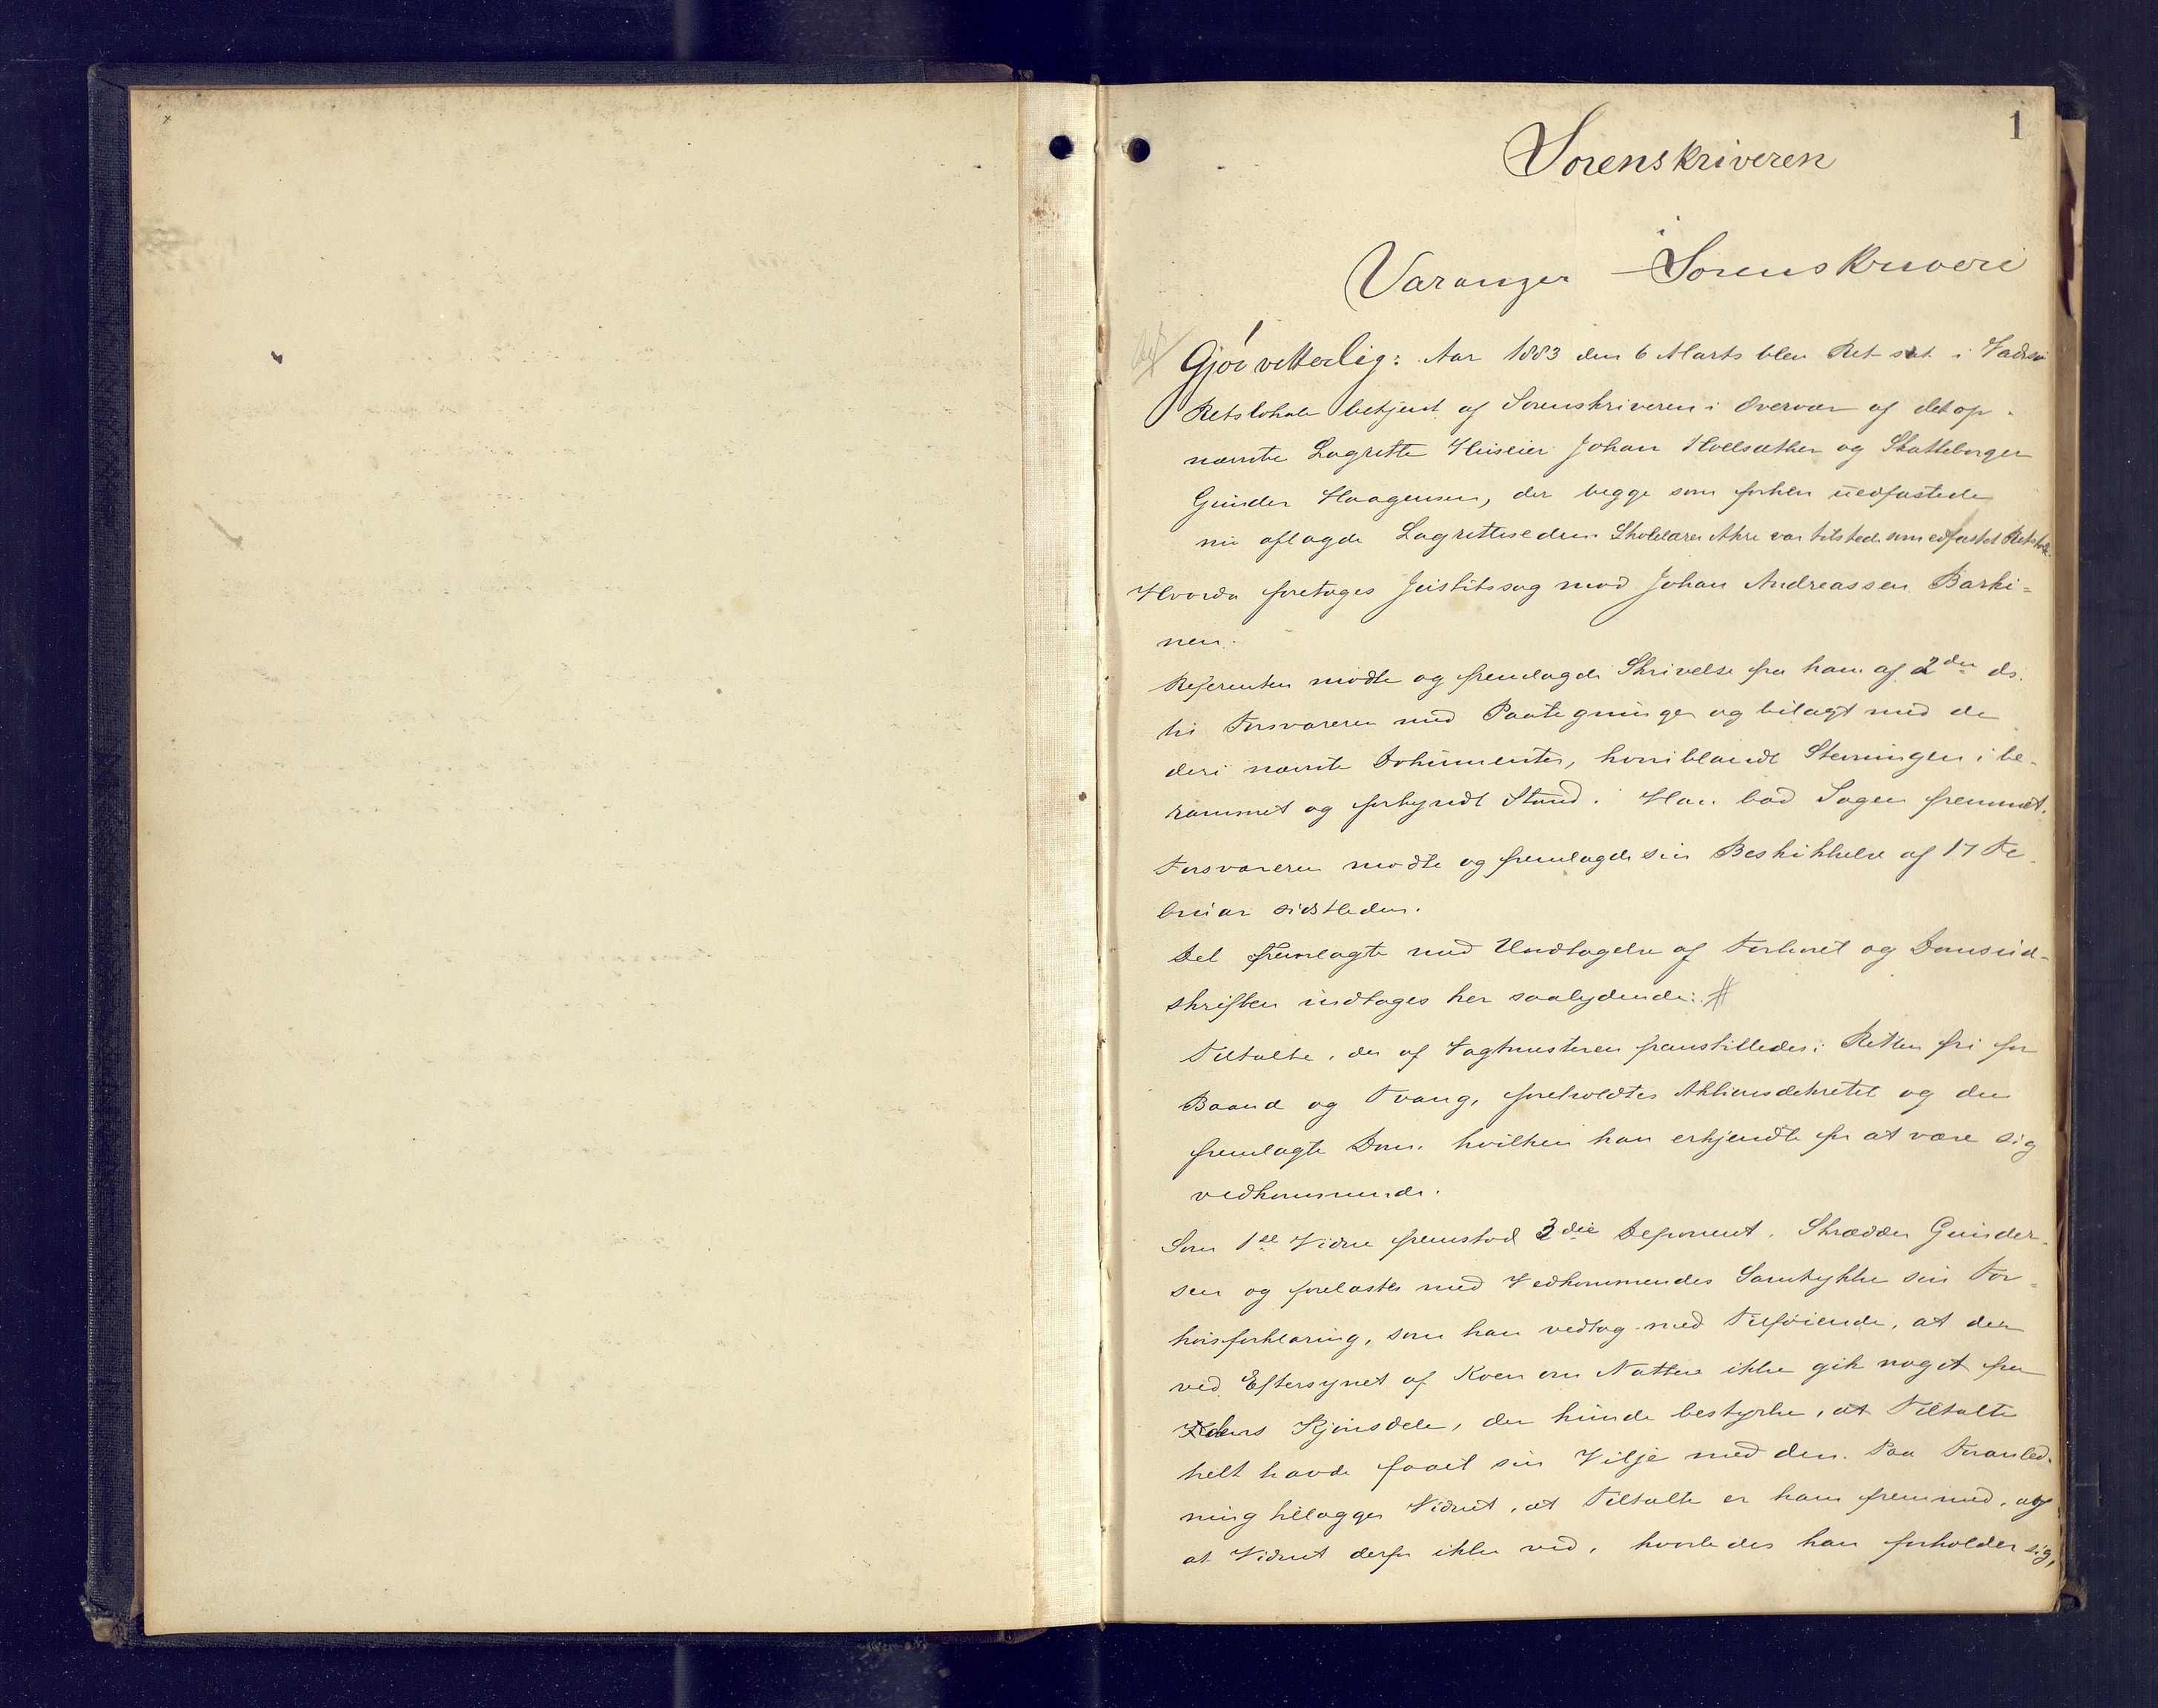 1
Sorenskriveren
i
Varanger Sorenskriveri
Gjør vitterlig: Aar 1883 den 6 Marts blev Ret sat i Vadsø
Retslokale betjent af Sorenskriveren i Overvær af det op-
nævnte Lagrette Huseier Johan Holsæther og Skatteborger
Gunder Haagensen, der begge som forhen uedfæstede
nu aflagde Lagretteseden. Skolelærer Ahre var tilstede som edfæstet Retstolk.
Hvorda foretages Justitssag mod Johan Andreassen Barki=
nen.
Referenten mødte og fremlagde Skrivelse fra ham af 2den ds.
til Forsvareren med Paategninger og bilagt med de
deri nævnte Dokumenter, hvoriblandt Stevningen i be-
rammet og forkyndt Stand. Han bad Sagen fremmet.
Forsvareren mødte og fremlagde sin Beskikkelse af 17 Fe-
bruar sidstleden.
Det fremlagte med Undtagelse af Forhøret og Domsud-
skriften indtages her saalydende: #
Tiltalte, der af Vagtmesteren fremstilledes i Retten fri for
Baand og Tvang, foreholdtes Aktionsdekretet og den
fremlagte Dom, hvilken han erkjendte for at være sig
vedkommende.
Som 1ste Vidne fremstod 3die Deponent, Skrædder Gunder-
sen og forelæstes med Vedkommendes Samtykke sin For-
hørsforklaring, som han vedtog med Tilføiende, at der
ved Eftersynet af Koen om Natten ikke gik noget fra
Kjønsdele, der kunde bestyrke, at Tiltalte
helt havde faaet sin Vilje med den. Paa Foranled-
ning tillægger Vidnet, at Tiltalte er ham fremmed, og
at Vidnet derfor ikke ved, hvorledes han forholder sig,